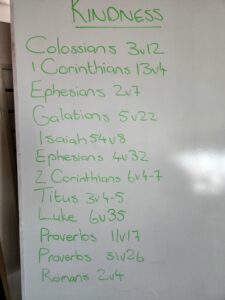 KINDNESS
Colossians 3v12
1 Corinthians 13v4
Ephesians 2v7
Galations 5v22
Isaiah 54v8
Ephesians 4v32
2 Corinthians 6v4-7
Titus 3v4-5
Luke 6v35
Proverbs 11v17
Proverbs 31v26
Romans 2v4